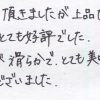 頂きましたが上品
とても好評でした。
滑らかで、とても美
ございました。